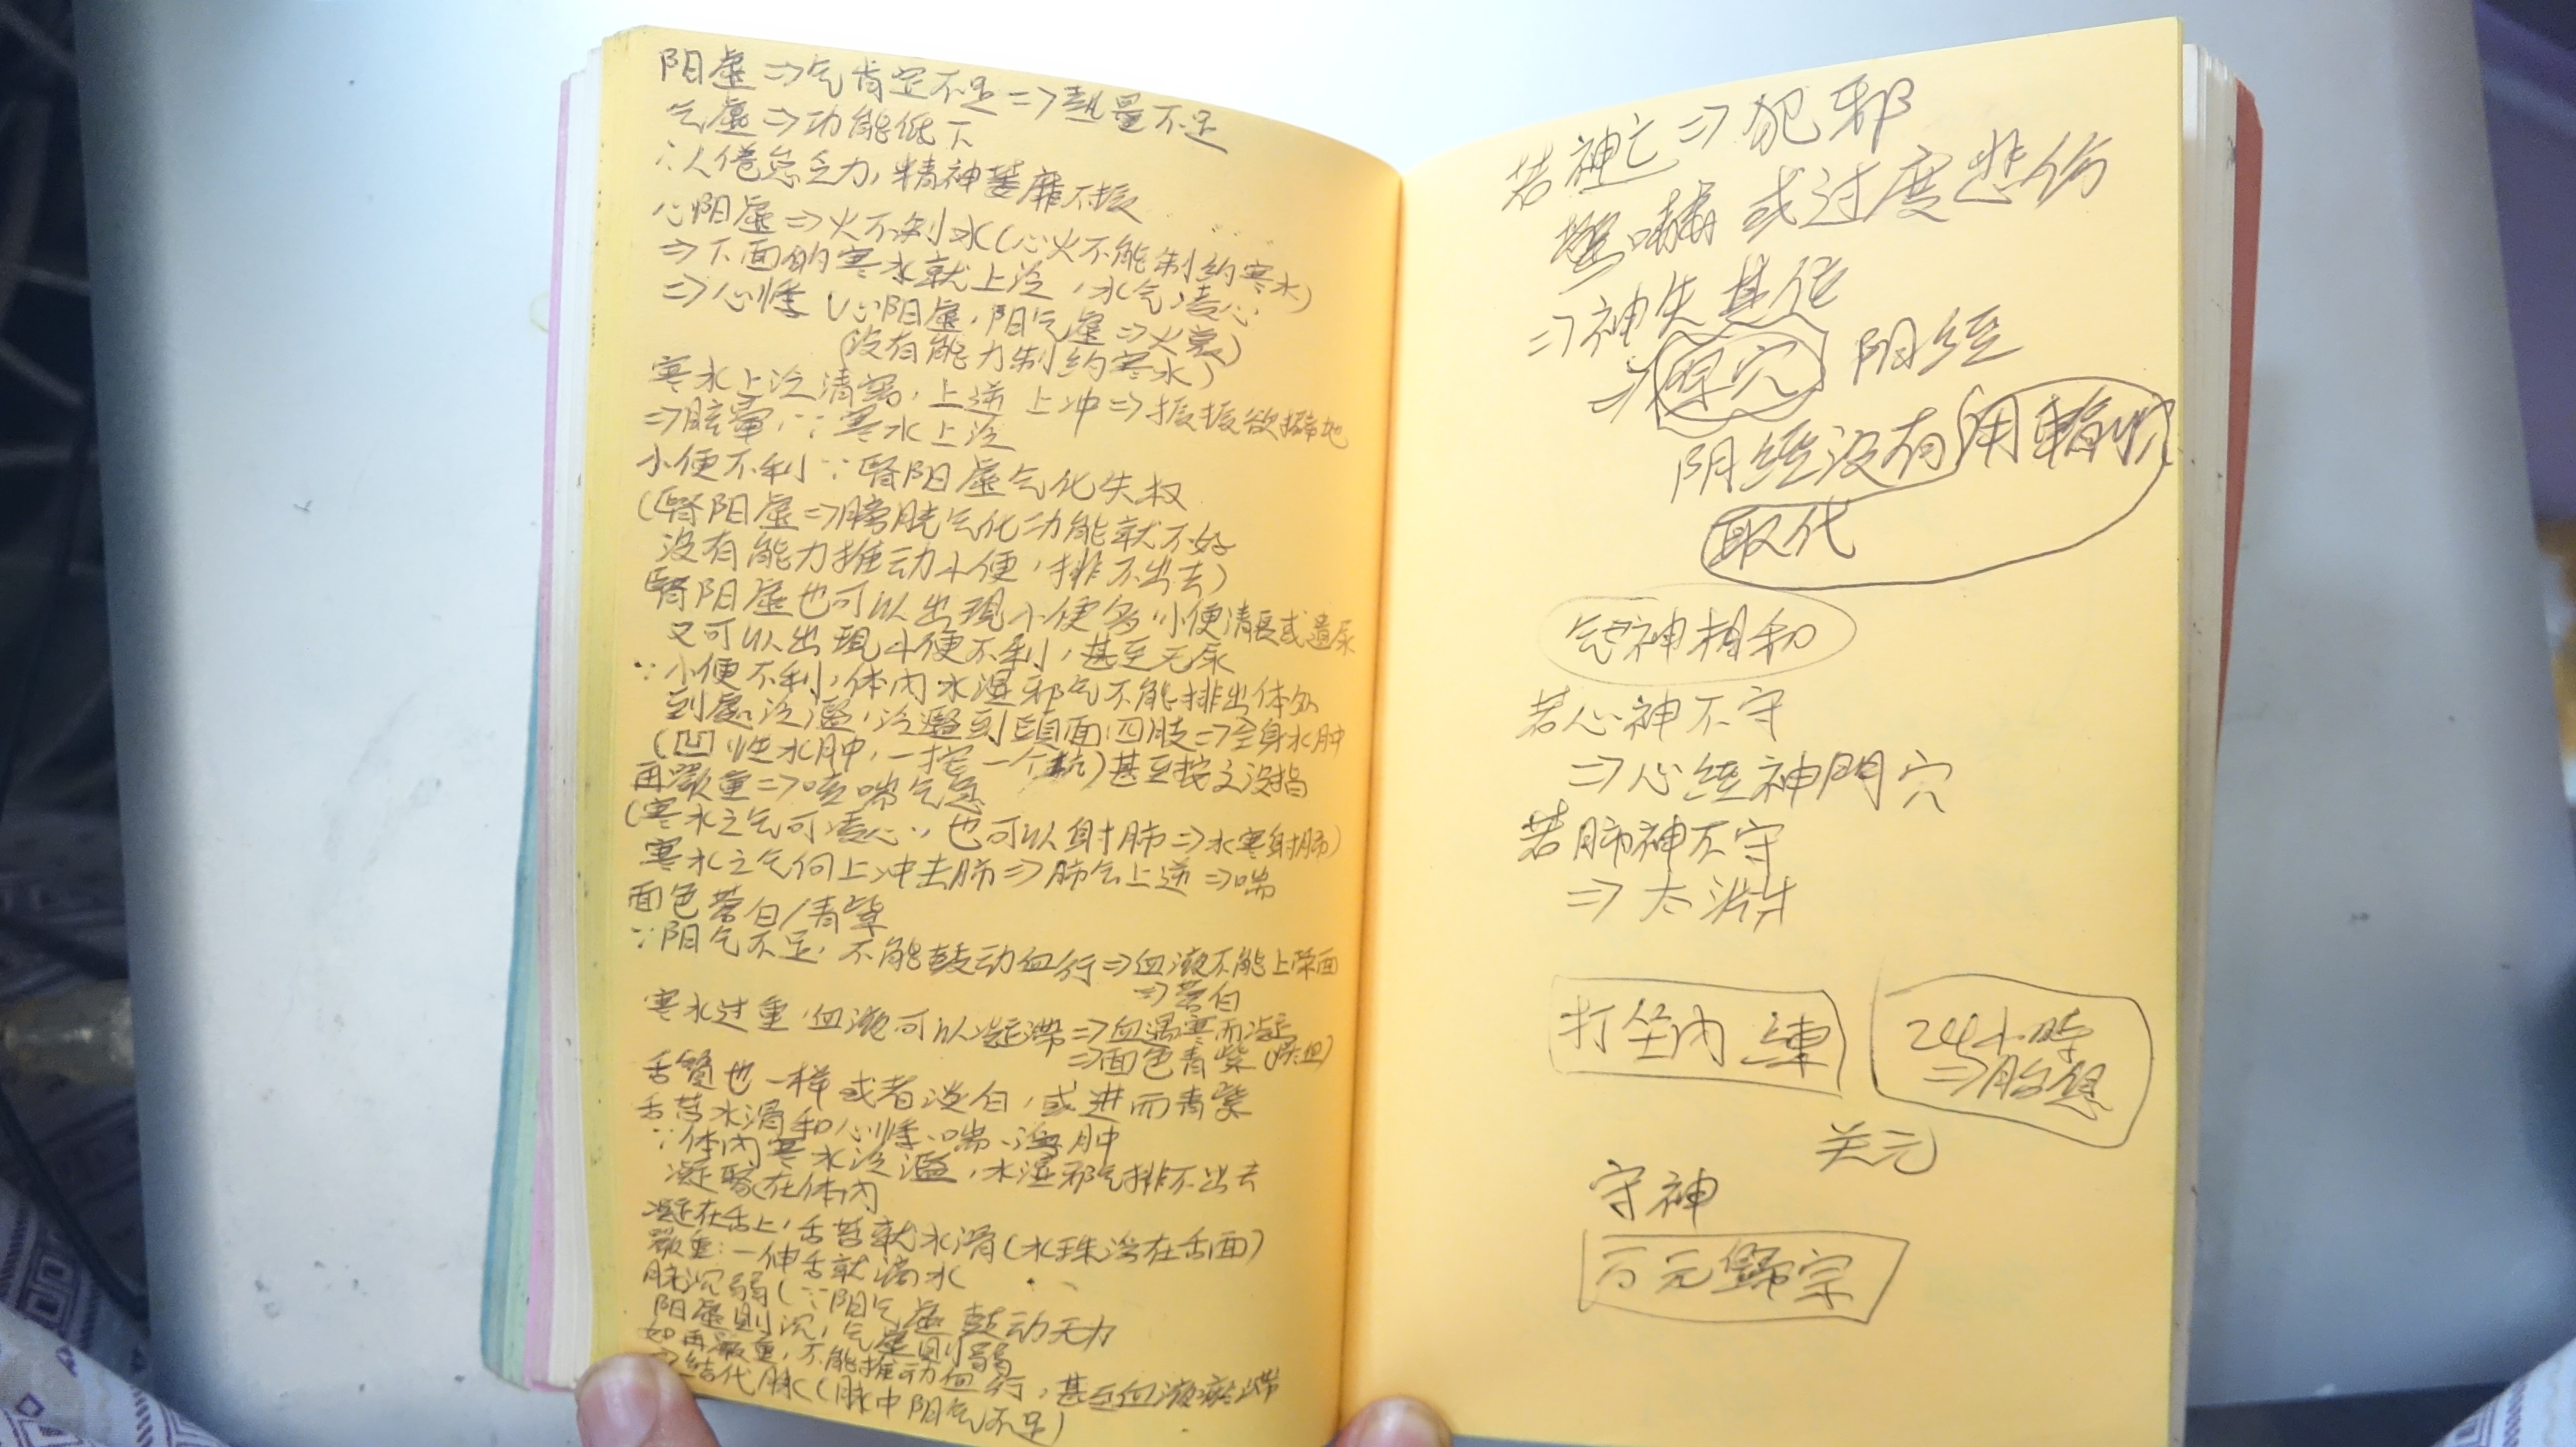 阳虚⇒气肯定不足⇒熱量不足
气虚⇒功能低下
∴人倦怠乏力,精神萎靡不振
心阳虚⇒火不制水(心火不能制约寒水)
⇒下面的寒水就上泛,水气凌心
⇒心悸(心阳虚,阳气虚⇒火衰)
(没有能力制约寒水)
寒水上泛清窍,上逆上冲⇒振振欲擗地
⇒眩暈,∵寒水上泛
小便不利∵腎阳虚气化失权
(腎阳虚⇒膀胱气化功能就不好
没有能力推动小便,排不出去)
腎阳虚也可以出現小便多,小便清長或遺尿
又可以出現小便不利,甚至无尿
∵小便不利,体内水湿邪气不能排出体外
到處泛濫,泛濫到頭面四肢⇒全身水肿
(凹性水肿,一按一个坑)甚至按之没指
再嚴重⇒咳喘气急
(寒水之气可凌心,也可以射肺⇒水寒射肺)
寒水之气向上冲击肺⇒肺气上逆⇒喘
面色苍白/青紫
∵阳气不足,不能鼓动血行⇒血液不能上荣面
⇒苍白
寒水过重,血液可以凝滯⇒血遇寒而凝
⇒面色青紫(瘀血)
舌質也一样或者淡白,或进而青紫
舌苔水滑和心悸、喘、浮肿
∵体内寒水泛濫,水湿邪气排不出去
凝聚在体内
凝在舌上,舌苔就水滑(水珠滞在舌面)
嚴重:一伸舌就滴水
脉沉弱(∵阳气虚鼓动无力
阳虚則沉,气虚則弱
如再嚴重,不能推动血行,甚至血液瘀滯
⇒结代脉(脉中阳气不足)
若神亡⇒犯邪
驚嚇或过度悲伤
⇒神失其位
⇒原穴 阴经
阴经没有用輸穴
取代
气神相和
若心神不守
⇒心经神門穴
若肺神不守
⇒太渊
打坐内練
24小時
⇒胎息
关元
守神
万元歸宗